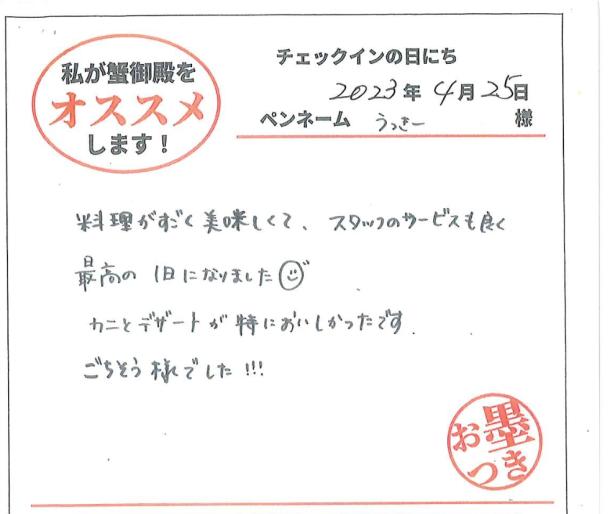 私が蟹御殿を
オススメ
します！
チェックインの日にち
2023年 4月 25日
ペンネーム うっきー 様
料理がすごく美味しくて、スタッフのサービスも良く
最高の 1日になりました
カニとデザートが特においしかったです.
ごちそう様でした!!!
お墨
つき